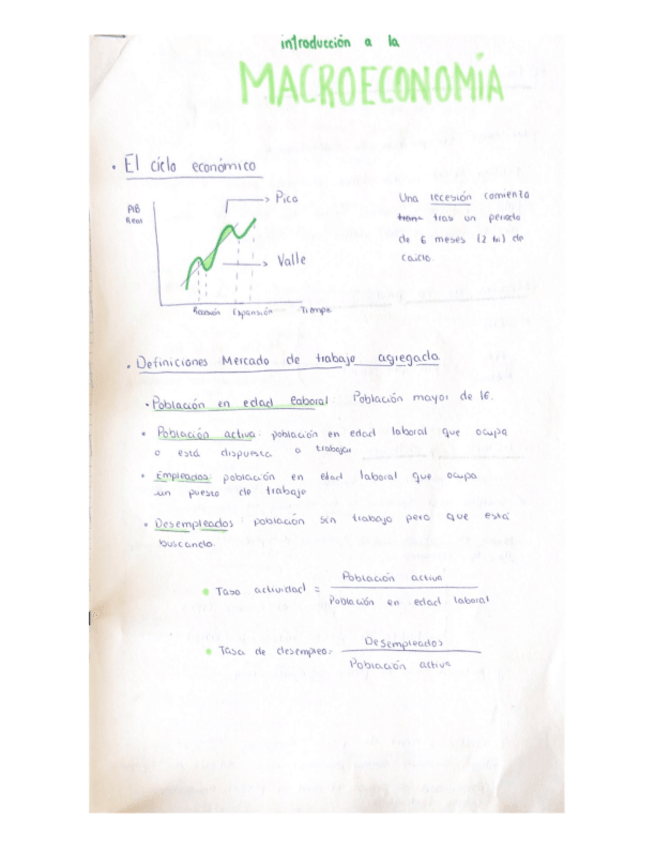 introducción a la
MACROECONOMÍA
• El ciclo económico
PIB
Real
Pico
Valle
Recesión Expansión Tiempo
Una recesión comienza
tras un periodo
de 6 meses (2 tri) de
caída.
• Definiciones Mercado de trabajo agregada
• Población en edad laboral: Población mayor de 16.
• Población activa: población en edad laboral que ocupa
o está dispuesta a trabajar
• Empleados: población en edad laboral que ocupa
un puesto de trabajo
• Desempleados: población sin trabajo pero que está
buscando.
• Tasa actividad = Población activa
Población en edad laboral
• Tasa de desempleo = Desempleados
Población activa